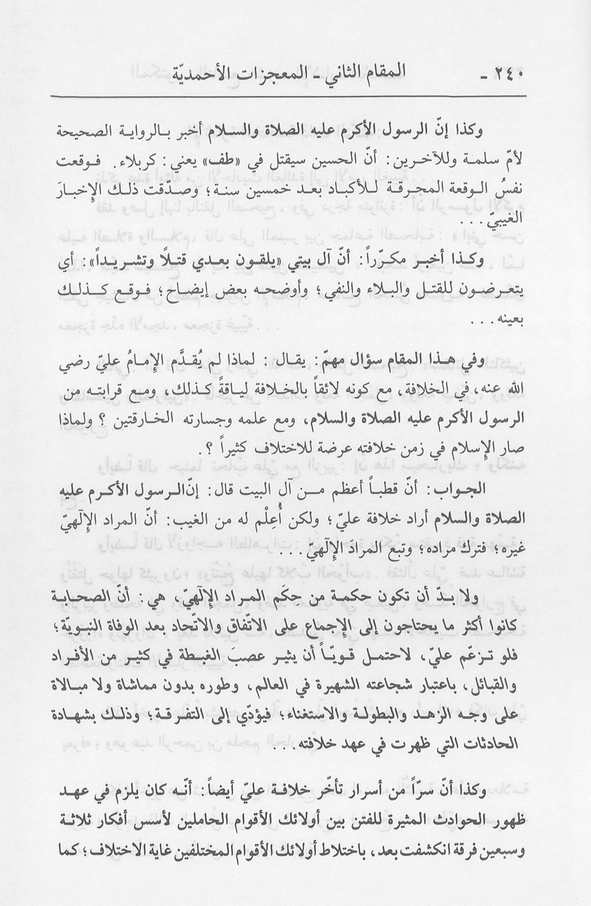 ٢٤٠ - المقام الثاني - المعجزات الأحمديّة
وكذا إنّ الرسول الأكرم عليه الصلاة والسلام أخبر بالرواية الصحيحة
لأمّ سلمة وللآخرين: أنّ الحسين سيقتل في «طف» يعني: كربلاء. فوقعت
نفسُ الوقعة المحرقة للأكباد بعد خمسين سنة؛ وصدّقت ذلك الإخبارَ
الغيبيّ...
وكذا أخبر مكرّراً: أنّ آل بيتي «يلقون بعدي قتلاً وتشريداً»: أي
يتعرضون للقتل والبلاء والنفي؛ وأوضحه بعض إيضاح؛ فوقع كذلك
بعينه...
وفي هذا المقام سؤال مهمّ: يقال: لماذا لم يُقدَّم الإمامُ عليّ رضي
الله عنه، في الخلافة، مع كونه لائقاً بالخلافة لياقةً كذلك، ومع قرابته من
الرسول الأكرم عليه الصلاة والسلام، ومع علمه وجسارته الخارقتين؟ ولماذا
صار الإسلام في زمن خلافته عرضة للاختلاف كثيراً؟.
الجواب: أنّ قطباً أعظم من آل البيت قال: إنّ الرسول الأكرم عليه
الصلاة والسلام أراد خلافة عليّ؛ ولكن أُعِلْم له من الغيب: أنّ المراد الإلٰهيّ
غيره؛ فترك مراده؛ وتبع المرادَ الإلٰهيّ...
ولا بدّ أن تكون حكمة من حِكَمِ المراد الإلٰهيّ، هي: أنّ الصحابة
كانوا أكثر ما يحتاجون إلى الإجماع على الاتّفاق والاتّحاد بعد الوفاة النبويّة؛
فلو تزعّم عليّ، لاحتمل قويّاً أن يثير عصبَ الغبطة في كثير من الأفراد
والقبائل، باعتبار شجاعته الشهيرة في العالم، وطوره بدون مماشاة ولا مبالاة
على وجه الزهد والبطولة والاستغناء؛ فيؤدّي إلى التفرقة؛ وذلك بشهادة
الحادثات التي ظهرت في عهد خلافته...
وكذا أنّ سرّاً من أسرار تأخّر خلافة عليّ أيضاً: أنّه كان يلزم في عهد
ظهور الحوادث المثيرة للفتن بين أولائك الأقوام الحاملين لأسس أفكار ثلاثة
وسبعين فرقة انكشفت بعد، باختلاط أولائك الأقوام المختلفين غاية الاختلاف؛ كما